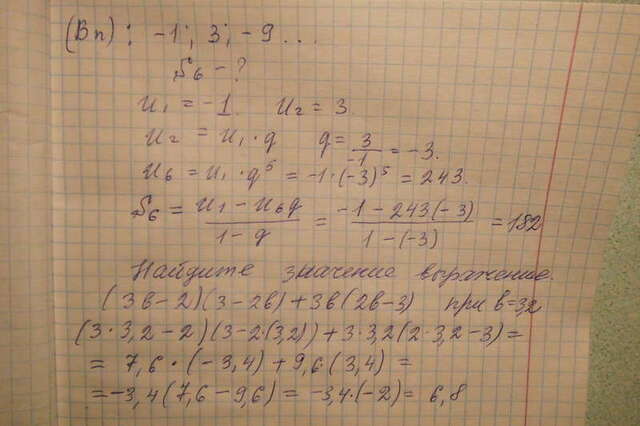 (Bn): -1; 3; -9 ...
S₆ - ?
u₁ = -1. u₂ = 3.
u₂ = u₁ · q q = 3/-1 = -3.
u₆ = u₁ · q⁵ = -1 · (-3)⁵ = 243.
S₆ = u₁ - u₆q / 1 - q = -1 - 243(-3) / 1 - (-3) = 182
Найдите значение выражение.
(3в-2)(3-2в)+3в(2в-3) при в=3,2
(3·3,2-2)(3-2(3,2))+3·3,2(2·3,2-3)=
= 7,6 · (-3,4) + 9,6(3,4) =
= -3,4(7,6-9,6) = -3,4·(-2) = 6,8